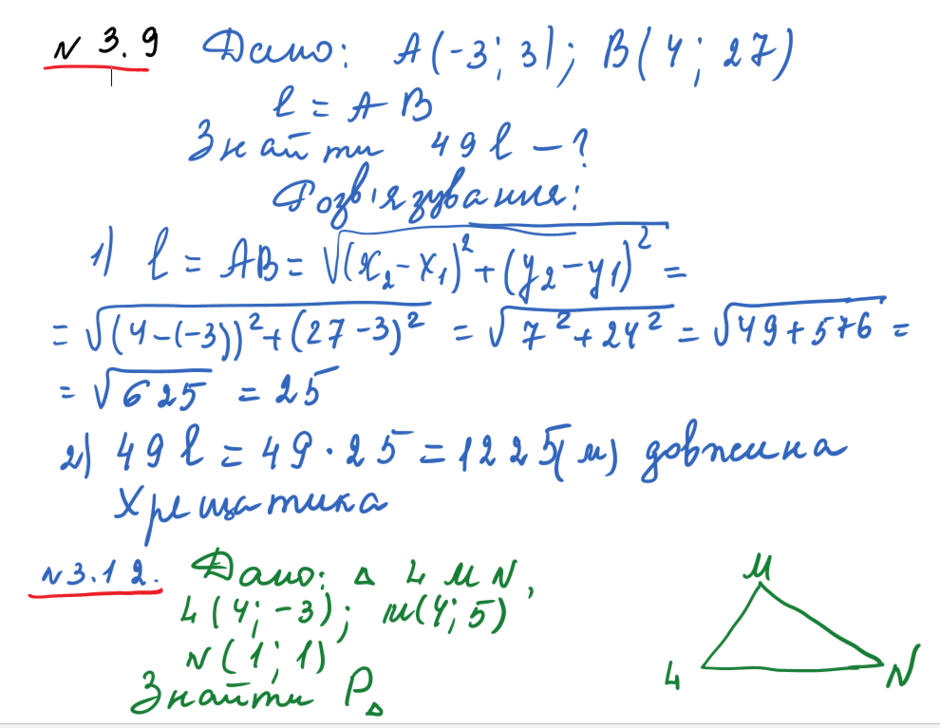 N 3.9 Дано: A(-3; 3); B(4; 27)
l = AB
Знайти 49l – ?
Розв'язування:
1) l = AB = √((x₂-x₁)²+(y₂-y₁)²) =
= √((4-(-3))²+(27-3)²) = √(7²+24²) = √(49+576) =
= √625 = 25
2) 49l = 49·25 = 1225(м) довжина
Хрещатика
N3.12. Дано: △ LMN,
L(4; -3); M(4; 5)
N(1; 1)
Знайти P△
M
L
N